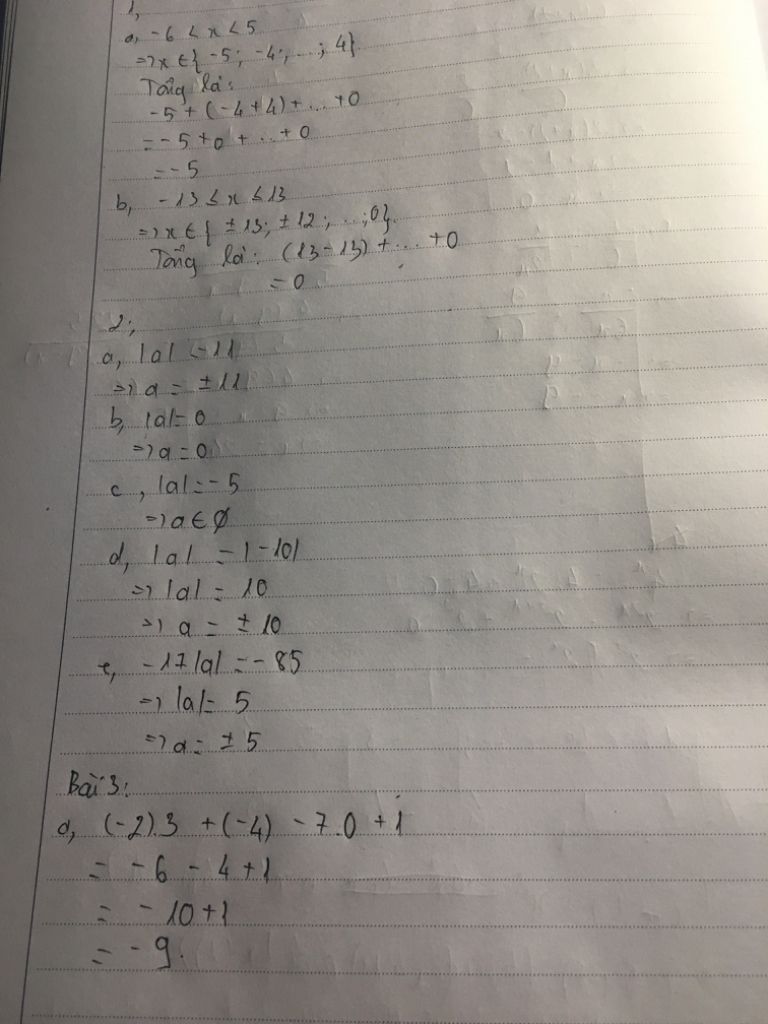 1,
a, -6 < x < 5
=> x ∈ { -5; -4; ...; 4}
Tổng là:
-5 + (-4+4) + ... +0
= -5 +0 + ... +0
= -5
b, -13 ≤ x ≤ 13
=> x ∈ { ±13; ±12; ...; 0}.
Tổng là: (13-13) + ... +0
= 0
2;
a, |a| = 11
=> a = ±11
b, |a| = 0
=> a = 0
c, |a| = -5
=> a ∈ ∅
d, |a| = |-10|
=> |a| = 10
=> a = ±10
e, -17|a| = -85
=> |a| = 5
=> a = ±5
Bài 3:
a, (-2).3 + (-4) - 7.0 + 1
= -6 - 4 + 1
= -10 + 1
= -9.